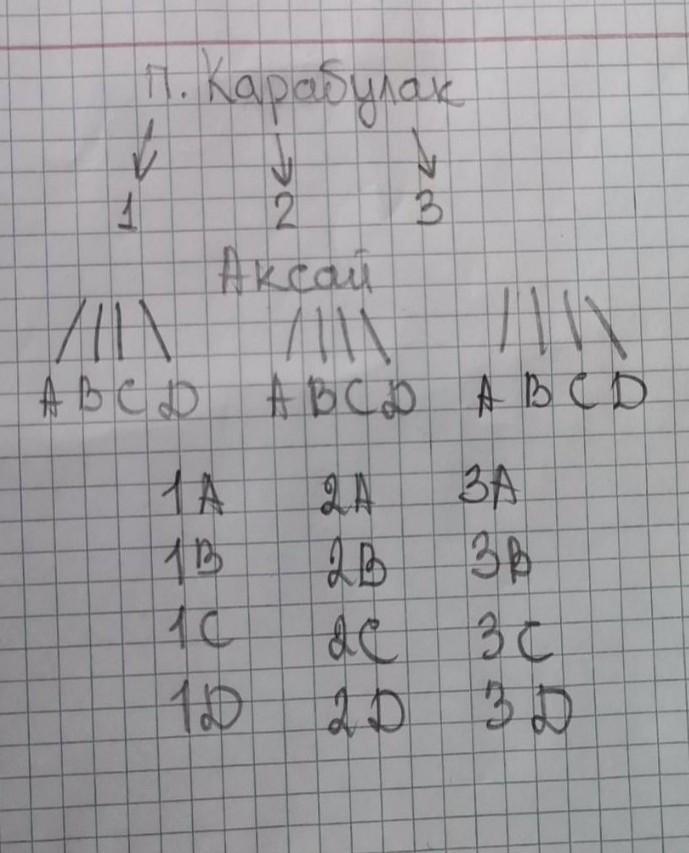 п. Карабулак
1 2 3
Аксай
A B C D A B C D A B C D
1A 2A 3A
1B 2B 3B
1C 2C 3C
1D 2D 3D